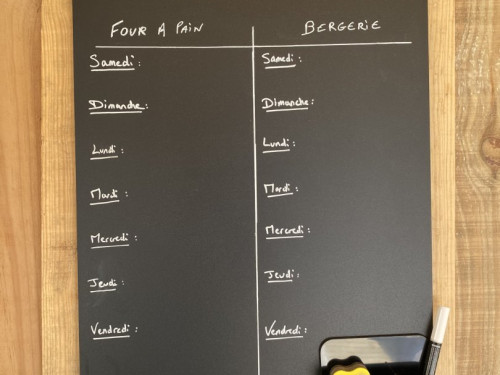 FOUR A PAIN
Samedi :
Dimanche :
Lundi :
Mardi :
Mercredi :
Jeudi :
Vendredi :
BERGERIE
Samedi :
Dimanche :
Lundi :
Mardi :
Mercredi :
Jeudi :
Vendredi :